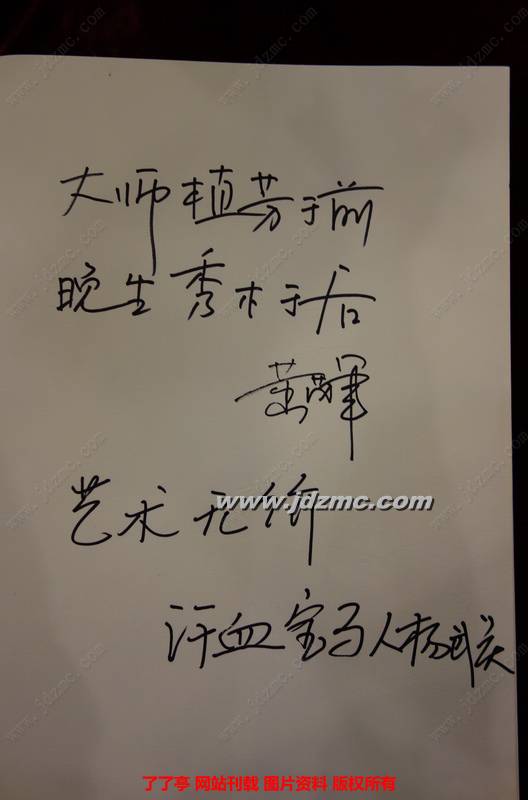 大师植芳于前
晚生秀木于后
艺术无价
www.jdzmc.com
汗血宝马人杨
了了亭 网站刊载 图片资料 版权所有